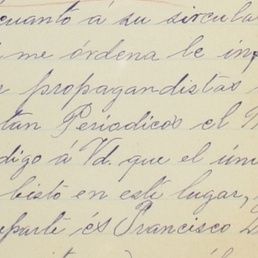 cuanto á su circula
me órdena le in
propagandistas
tan Periodicos el
digo á Vd. que el úni
bisto en este lugar,
parte és Francisco